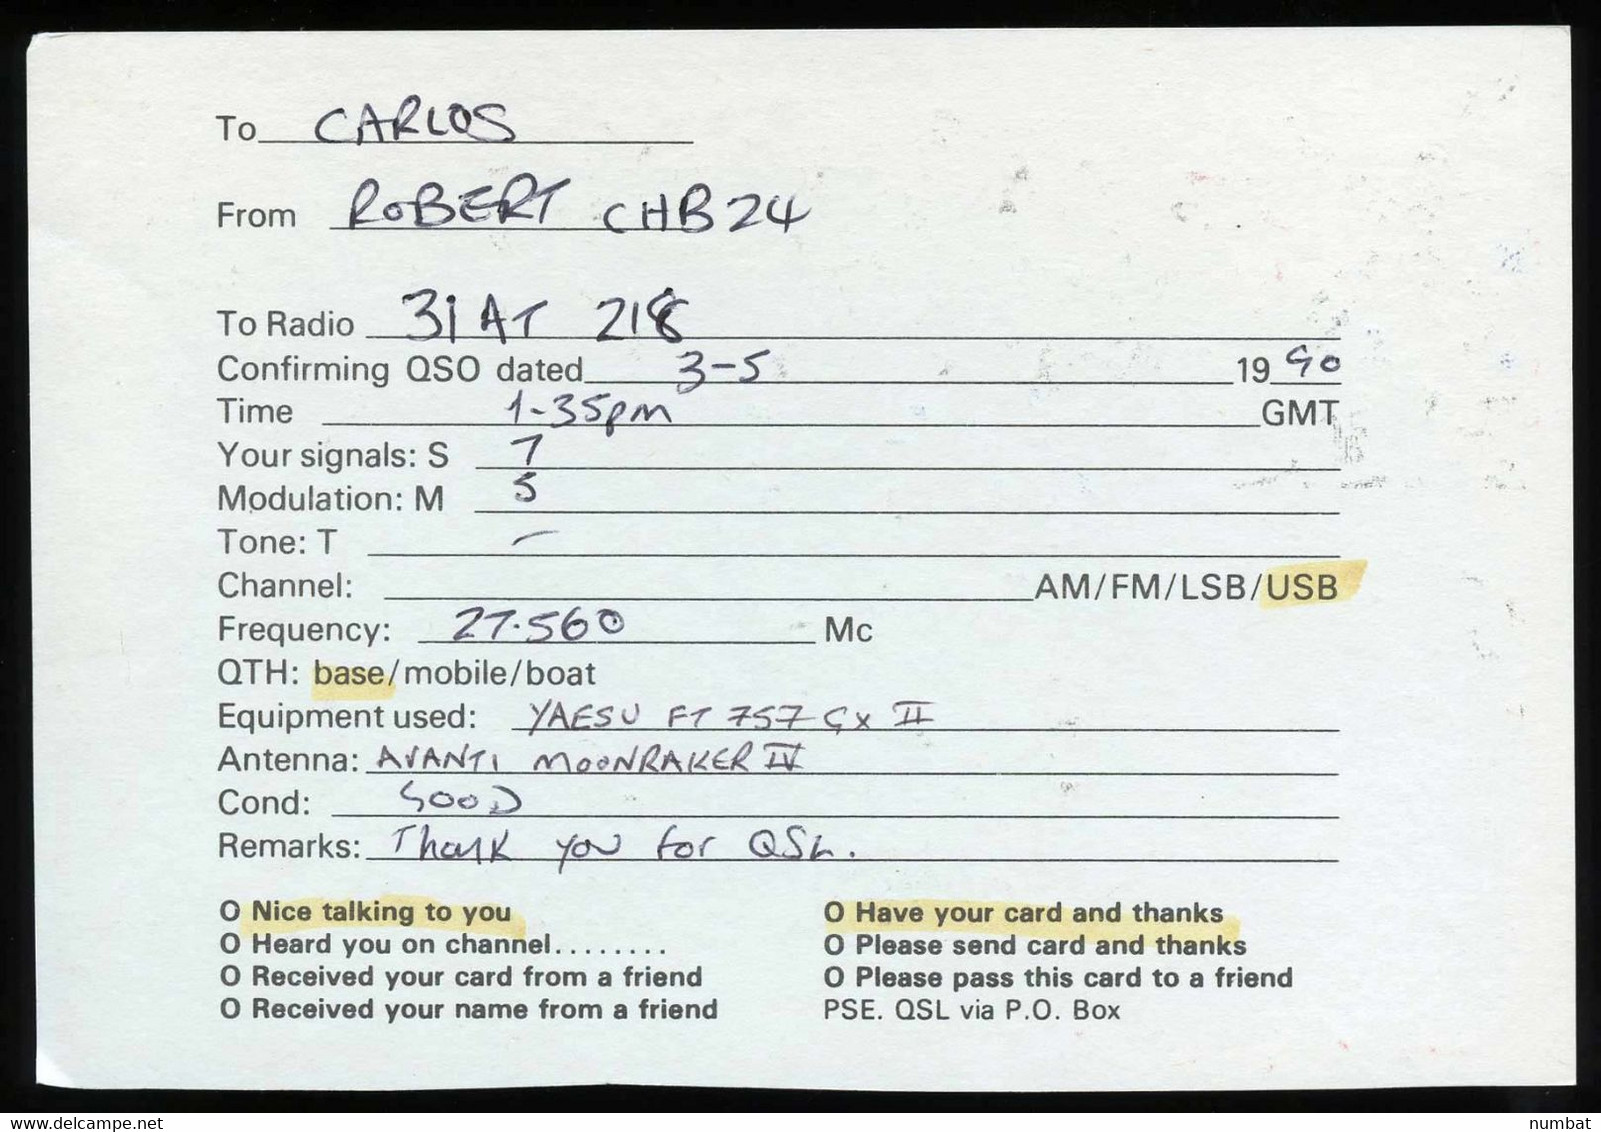 To CARLOS
From ROBERT CHB24
To Radio 31 AT 218
Confirming QSO dated 3-5 1990
Time 1-35pm GMT
Your signals: S 7
Modulation: M 5
Tone: T –
Channel: AM/FM/LSB/USB
Frequency: 27.560 Mc
QTH: base/mobile/boat
Equipment used: YAESU FT 757 GX II
Antenna: AVANTI MOONRAKER IV
Cond: GOOD
Remarks: Thank you for QSL.
O Nice talking to you
O Heard you on channel........
O Received your card from a friend
O Received your name from a friend
O Have your card and thanks
O Please send card and thanks
O Please pass this card to a friend
PSE. QSL via P.O. Box
delcampe.net
numbat